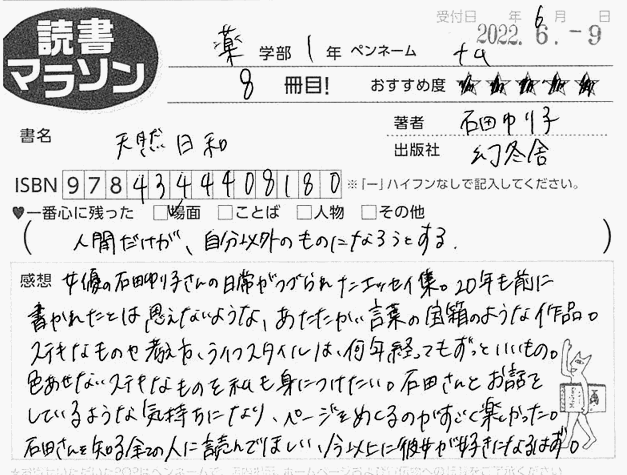 受付日 年 6月 日
2022.6.-9
読書
マラソン
薬 学部 1 年 ペンネーム ナム
8 冊目! おすすめ度 ★★★★★
書名 天然日和
著者 石田ゆり子
出版社 幻冬舎
ISBN 9784344408180 ※「ー」ハイフンなしで記入してください。
♥一番心に残った □場面 □ことば □人物 □その他
(人間だけが、自分以外のものになろうとする.)
感想 女優の石田ゆり子さんの日常がつづられたエッセイ集。20年も前に
書かれたとは思えないような、あたたかい言葉の宝箱のような作品。
ステキなものや考え方、ライフスタイルは、何年経ってもずっといいもの。
色あせないステキなものを私も身につけたい。石田さんとお話を
しているような気持ちになり、ページをめくるのがすごく楽しかった。
石田さんを知る全ての人に読んでほしい、今以上に彼女が好きになるはず。